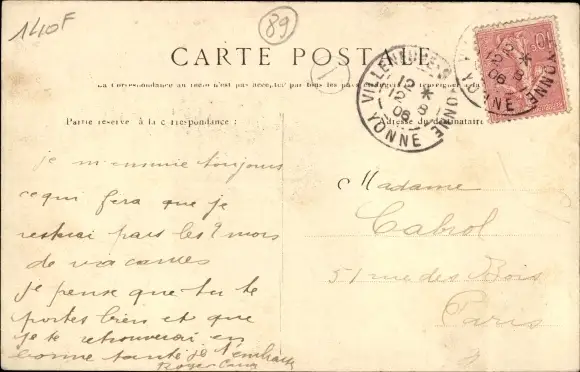 140F
89
CARTE POSTALE
La Correspondance au recto n'est pas acceptée par tous les pays étrangers
Partie réservée à la correspondance :
Adresse du destinataire
VILLENEUVE YONNE
12 *
12 8
06
YONNE
je m'ennuie toujours
ce qui fera que je
resterai pas les 2 mois
de vacances
je pense que tu te
portes bien et que
je te retrouverai en
bonne santé je t'embrasse
Roger
Madame
Cabrol
51 rue des Bois
Paris